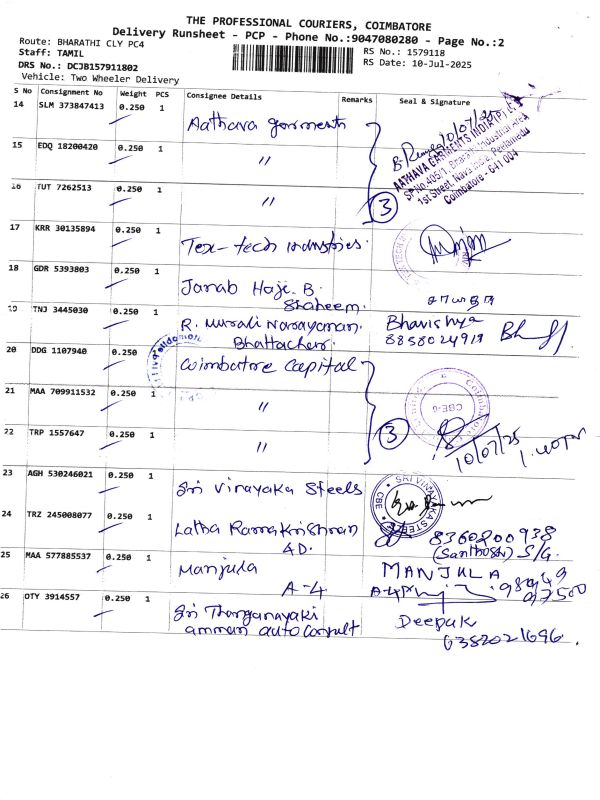 THE PROFESSIONAL COURIERS, COIMBATORE
Delivery Runsheet - PCP - Phone No.:9047080280 - Page No.:2
Route: BHARATHI CLY PC4
RS No.: 1579118
Staff: TAMIL
RS Date: 10-Jul-2025
DRS No.: DCJB157911802
Vehicle: Two Wheeler Delivery
S No Consignment No Weight PCS Consignee Details Remarks Seal & Signature
14 SLM 373847413 0.250 1 Aathava garments 10/07/25
AATHAVA GARMENTS INDIA (P) LTD
1st Street, Nava India, Peelamedu
Coimbatore - 641 004
15 EDQ 18200420 0.250 1 "
16 TUT 7262513 0.250 1 " 3
17 KRR 30135894 0.250 1 Tex-tech industries.
18 GDR 5393803 0.250 1 Janab Haji. B.
Shaheem.
19 TNJ 3445030 0.250 1 R. Murali Narayanan Bhavishya
Bhattacherr 8858024918
20 DDG 1107940 0.250 Coimbatore capital
21 MAA 709911532 0.250 1 " CBE-6
22 TRP 1557647 0.250 1 " 3 10/07/25
23 AGH 530246021 0.250 1 Sri Vinayaka Steels SRI VINAYAKA STEELS CBE
24 TRZ 245008077 0.250 1 Latha Ramakrishnan 8360800938
4D. (Santhosh) S/G.
25 MAA 577885537 0.250 1 Manjula MANJULA
A-4 A-4
26 OTY 3914557 0.250 1 Sri Thanganayaki Deepak
amman auto Consult 6382021696.